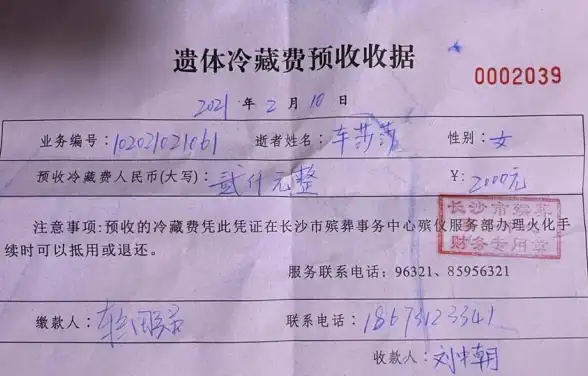 遗体冷藏费预收收据
0002039
2021年2月10日
业务编号：102021021061 逝者姓名：车莎莎 性别：女
预收冷藏费人民币(大写)：贰仟元整 ¥：2000元
注意事项:预收的冷藏费凭此凭证在长沙市殡葬事务中心殡仪服务部办理火化手
续时可以抵用或退还。
长沙市殡葬
财务专用章
服务联系电话：96321、85956321
缴款人： 联系电话：18673123341
收款人：刘中朝